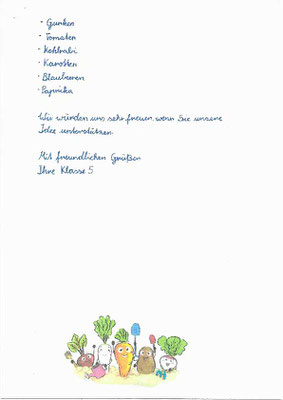 - Gurken
- Tomaten
- Kohlrabi
- Karotten
- Blaubeeren
- Paprika
Wir würden uns sehr freuen, wenn Sie unsere
Idee unterstützen.
Mit freundlichen Grüßen
Ihre Klasse 5